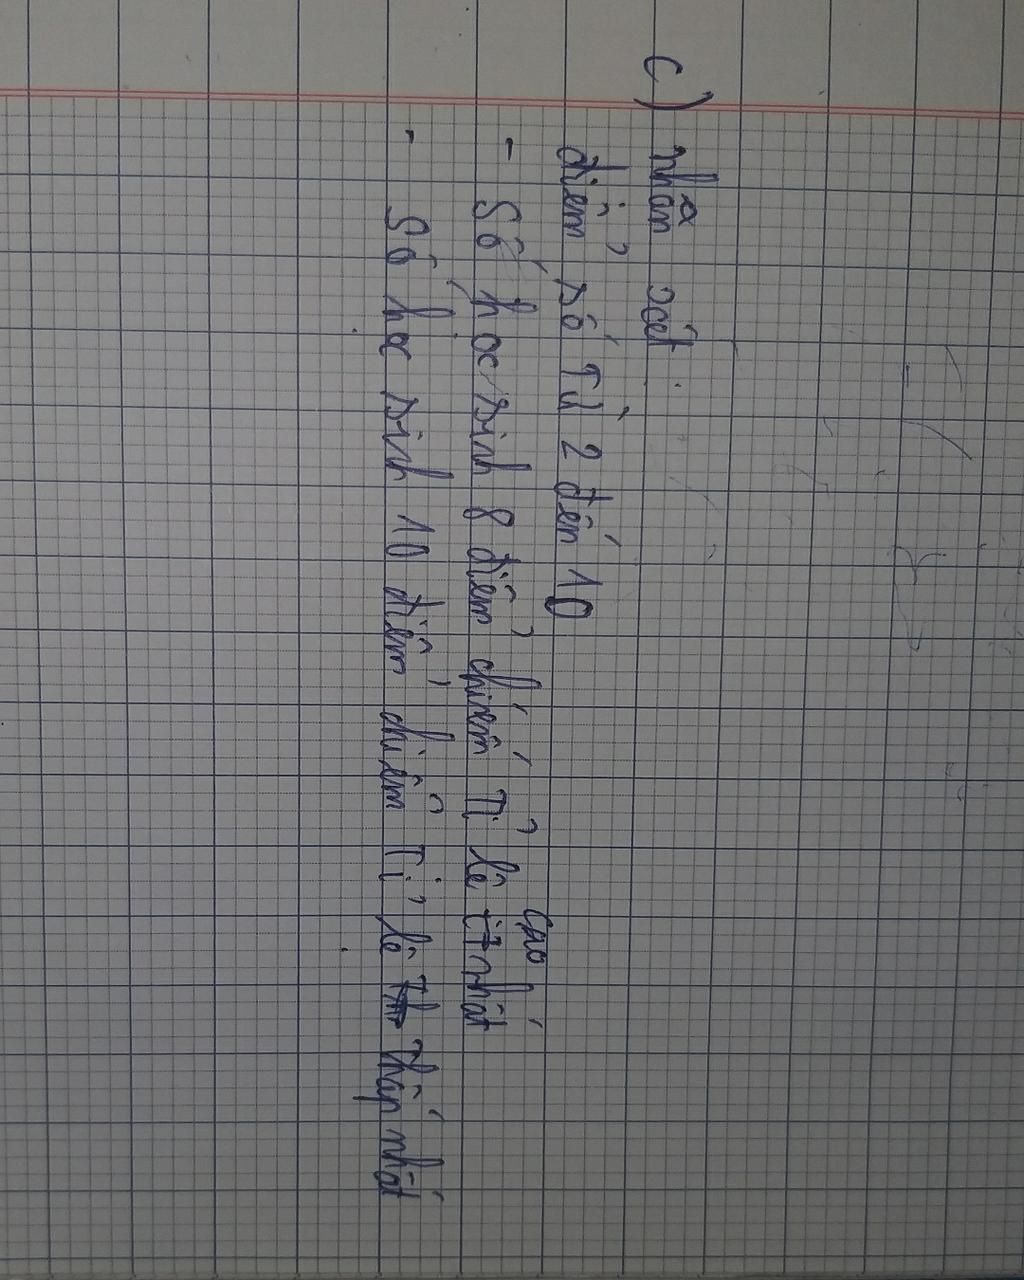 c) nhận xét
điểm số Từ 2 đến 10
- Số học sinh 8 điểm chiếm Tỉ lệ cao nhất
- Số học sinh 10 điểm chiếm Tỉ lệ thấp nhất